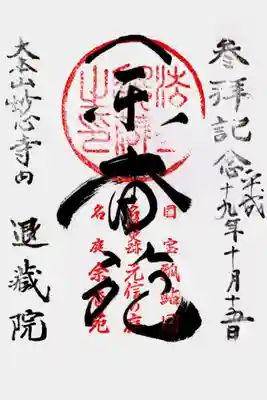 参拝記念
平成十九年十月十五日
余香苑
国宝瓢鮎図
元信の庭
名庭余香苑
大本山妙心寺内
退藏院